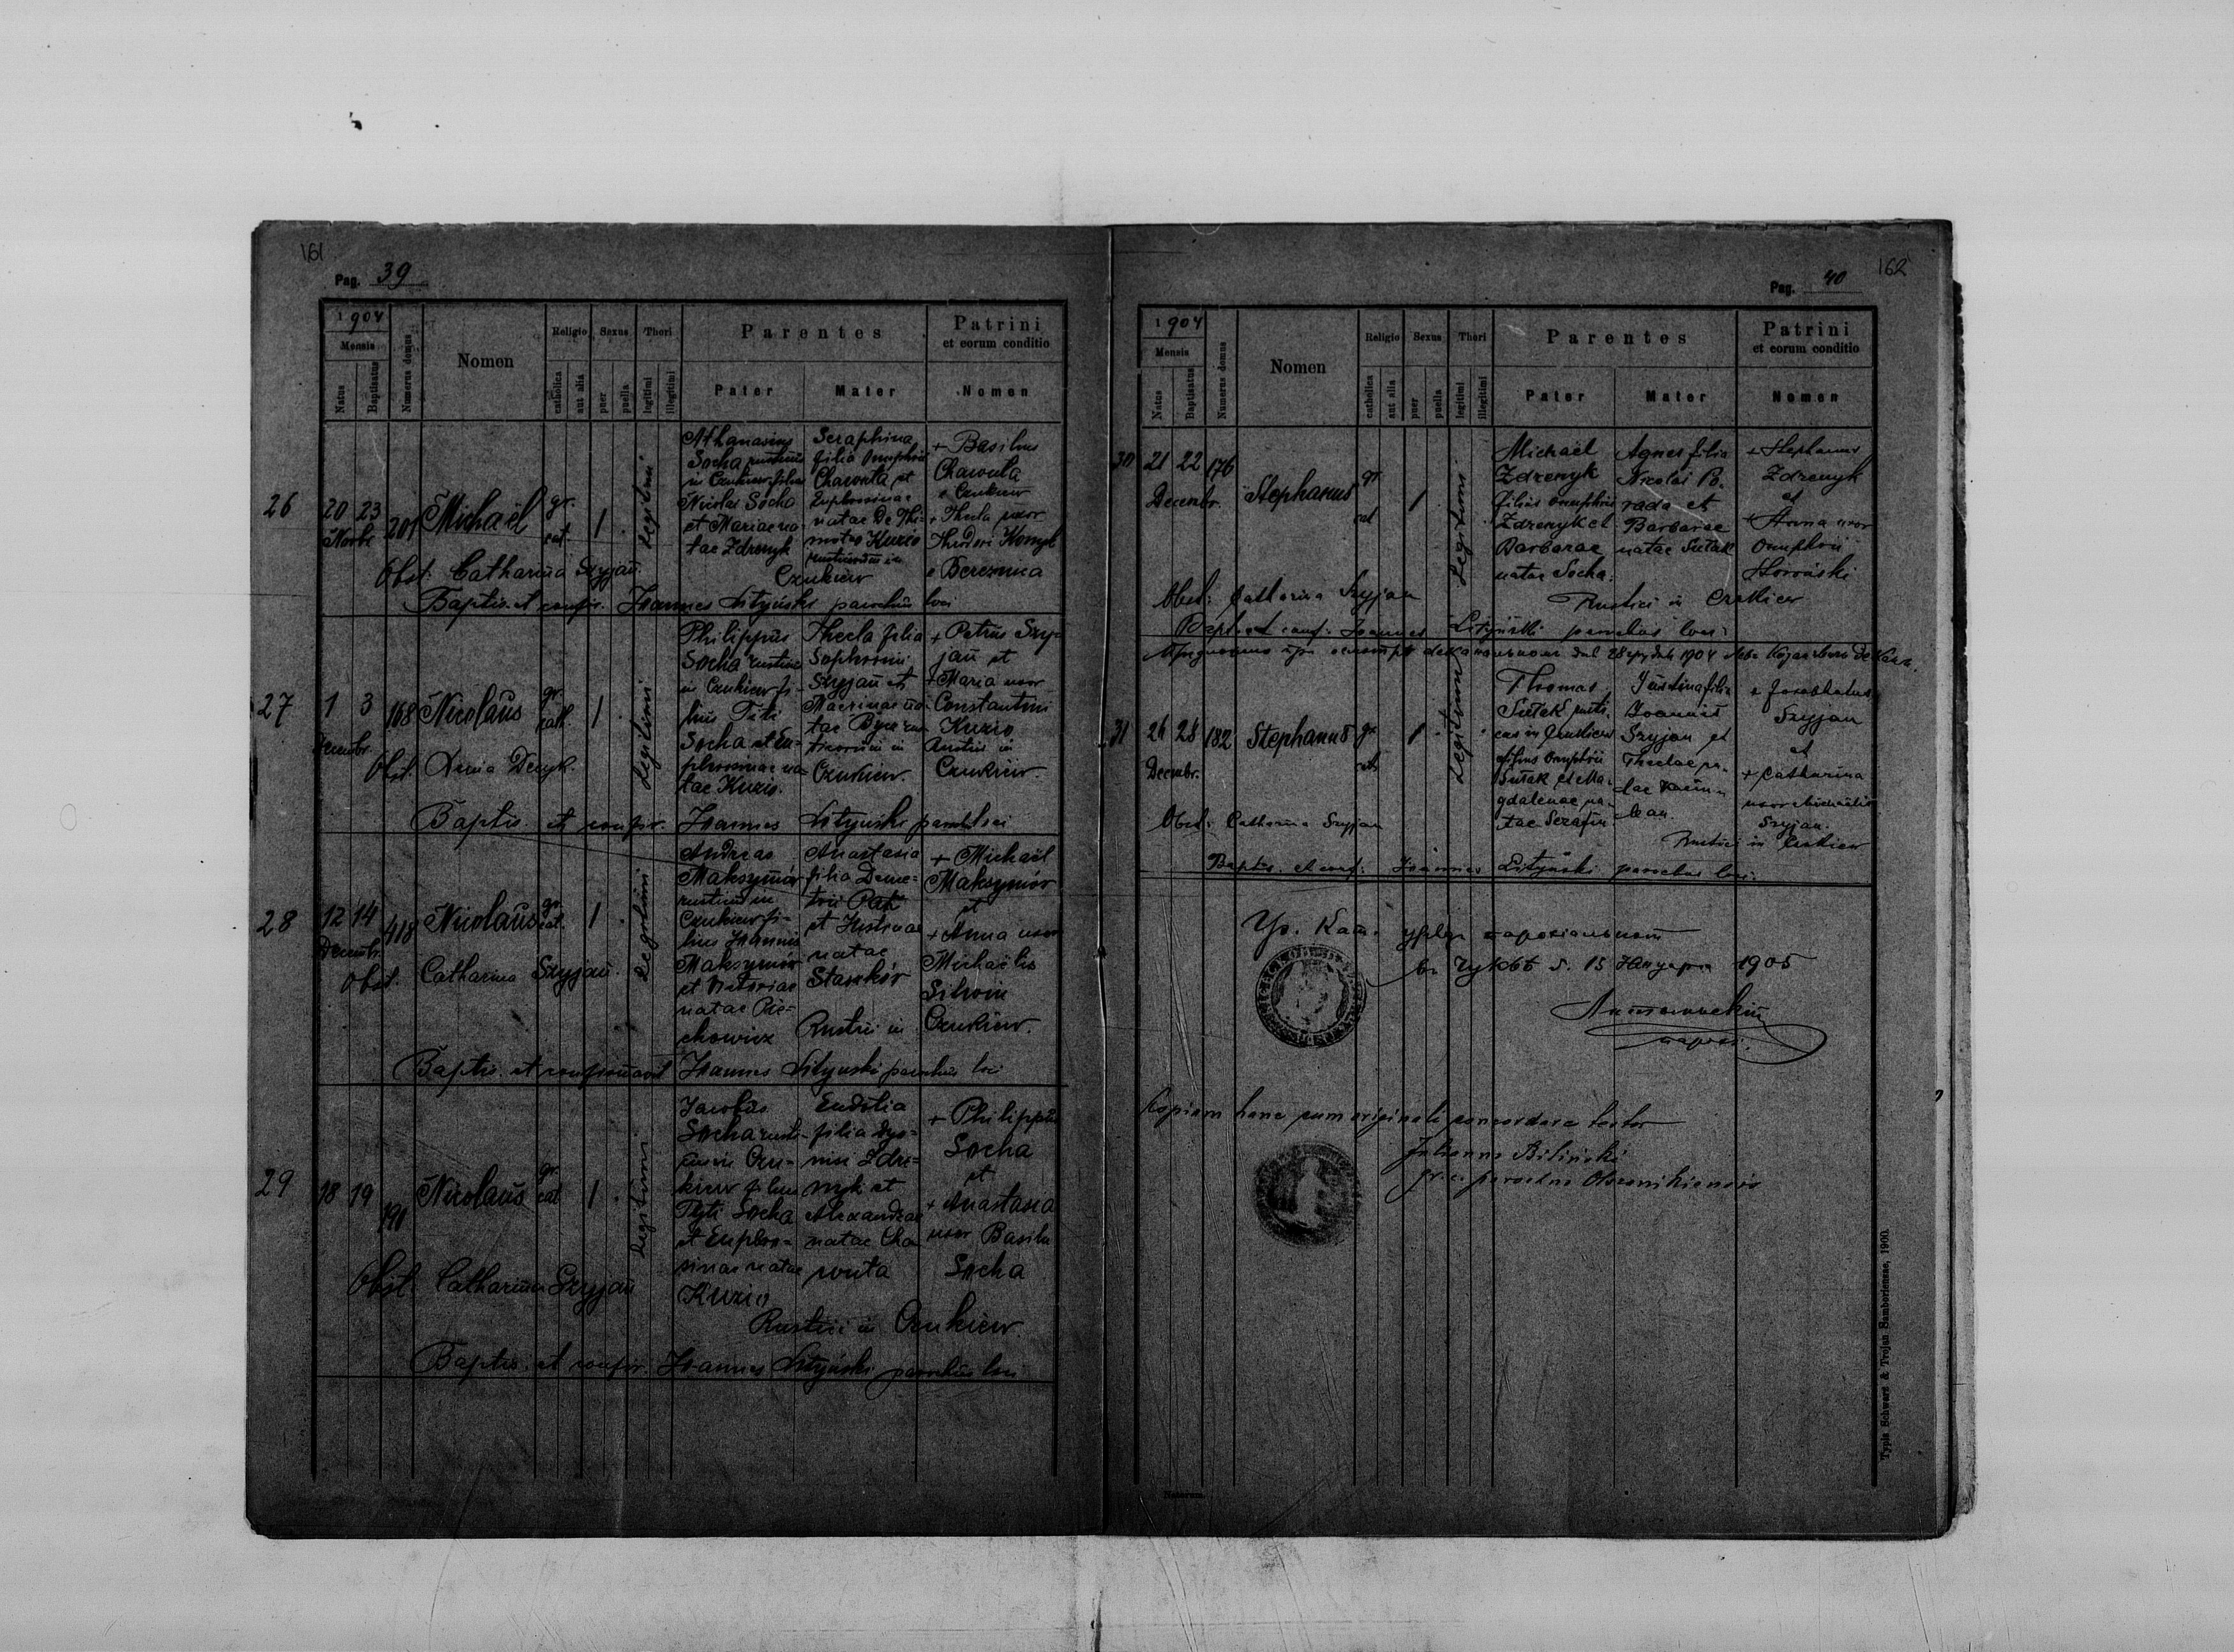 161
Pag. 39
1904
Mensis
Natus
Baptisatus
Numerus domus
Nomen
Religio
catholica
aut alia
Sexus
puer
puella
Thori
legitimi
illegitimi
Parentes
Pater
Mater
Patrini
et eorum conditio
Nomen
26
20 23
Novbr
201
Michaël
gr.
cat.
1
legitimi
Athanasius
Socha rusticus
in Czukiew filius
Nicolai Socha
et Mariae na-
tae Zdrenyk
Seraphina
filia Onuphrii
Charouta et
Euphrosinae
natae De Thi-
moteo Kuzio
rusticorum in
Czukiew
+ Basilius
Charouta
e Czukiew
+ Thecla uxor
Theodori
e Bereznica
Obst. Catharina Szyjan.
Baptis. et confir. Joannes Lityński parochus loci
27
1 3
Decembr.
168
Nicolaus
gr.
cath.
1
legitimi
Philippus
Socha rusticus
in Czukiew fi-
lius Titi
Socha et Eu-
phrosinae na-
tae Kuzio.
Thecla filia
Sophronii
Szyjan et
Macrinae na-
tae
rum in
Czukiew.
+ Petrus Szy-
jan et
+ Maria uxor
Constantini
Kuzio
rustici in
Czukiew.
Obst. Denyk.
Baptis. et confir. Joannes Lityński paroch loci
28
12 14
Decembr.
418
Nicolaus
gr.
cat.
1
legitimi
Andreas
Maksymów
rusticus in
Czukiew fi-
lius Joannis
Maksymów
et Victoriae
natae Pie-
chowicz
Anastasia
filia Deme-
trii
et Justinae
natae
Stankór
Rustici in
+ Michaël
Maksymów
et
+ Anna uxor
Michaëlis
Czukiew.
Obst. Catharina Szyjan.
Baptis. et confirmavit Joannes Lityński parochus loci
29
18 19
191
Nicolaus
gr.
cat
1
legitimi
Jacobus
Socha rusti-
cus in Czu-
kiew filius
Titi Socha
et Euphro-
sinae natae
Kuzio
Eudolia
filia Dyo-
nisii Zdre-
nyk et
Alexandrae
natae Cha-
routa
+ Philippus
Socha
et
+ Anastasia
uxor Basilii
Socha
Rustici in Czukiew.
Obst. Catharina Szyjan
Baptis. et confir. Joannes Lityński parochus loci
162
Pag. 40
1904
Mensis
Natus
Baptisatus
Numerus domus
Nomen
Religio
catholica
aut alia
Sexus
puer
puella
Thori
legitimi
illegitimi
Parentes
Pater
Mater
Patrini
et eorum conditio
Nomen
30
21 22
Decembr.
176
Stephanus
gr
cat
1
Legitimi
Michaël
Zdrenyk
filius Onuphrii
Zdrenyk et
Barbarae
natae Socha.
Agnes filia
Nicolai Po-
rada et
Barbarae
natae Sutak
+ Stephanus
Zdrenyk
et
+ Anna uxor
Onuphrii
Rustici in Czukiew
Obst: Catharina Szyjan
Bapt. et conf: Joannes Lityński parochus loci
28 1904
31
26 28
Decembr.
182
Stephanus
gr
cat
1
Legitimi
Thomas
Sutak rusti-
cus in Czukiew
filius Onuphrii
Sutak et Ma-
gdalenae na-
tae Serafin
Justina filia
Joannis
Szyjan et
Theclae na-
tae
+ Josaphatus
Szyjan
et
+ Catharina
uxor Michaëlis
Szyjan.
Rustici in Czukiew
Obst: Catharina Szyjan
Baptis. et conf: Joannes Lityński parochus loci.
Гр. Кат. уряд парохіальный
1905
Copiam hanc cum originali concordare testor
Julianus Biliński
gr. c. parochus
Typis Schwarz & Trojan Samboriensae, 1900.
Natorum